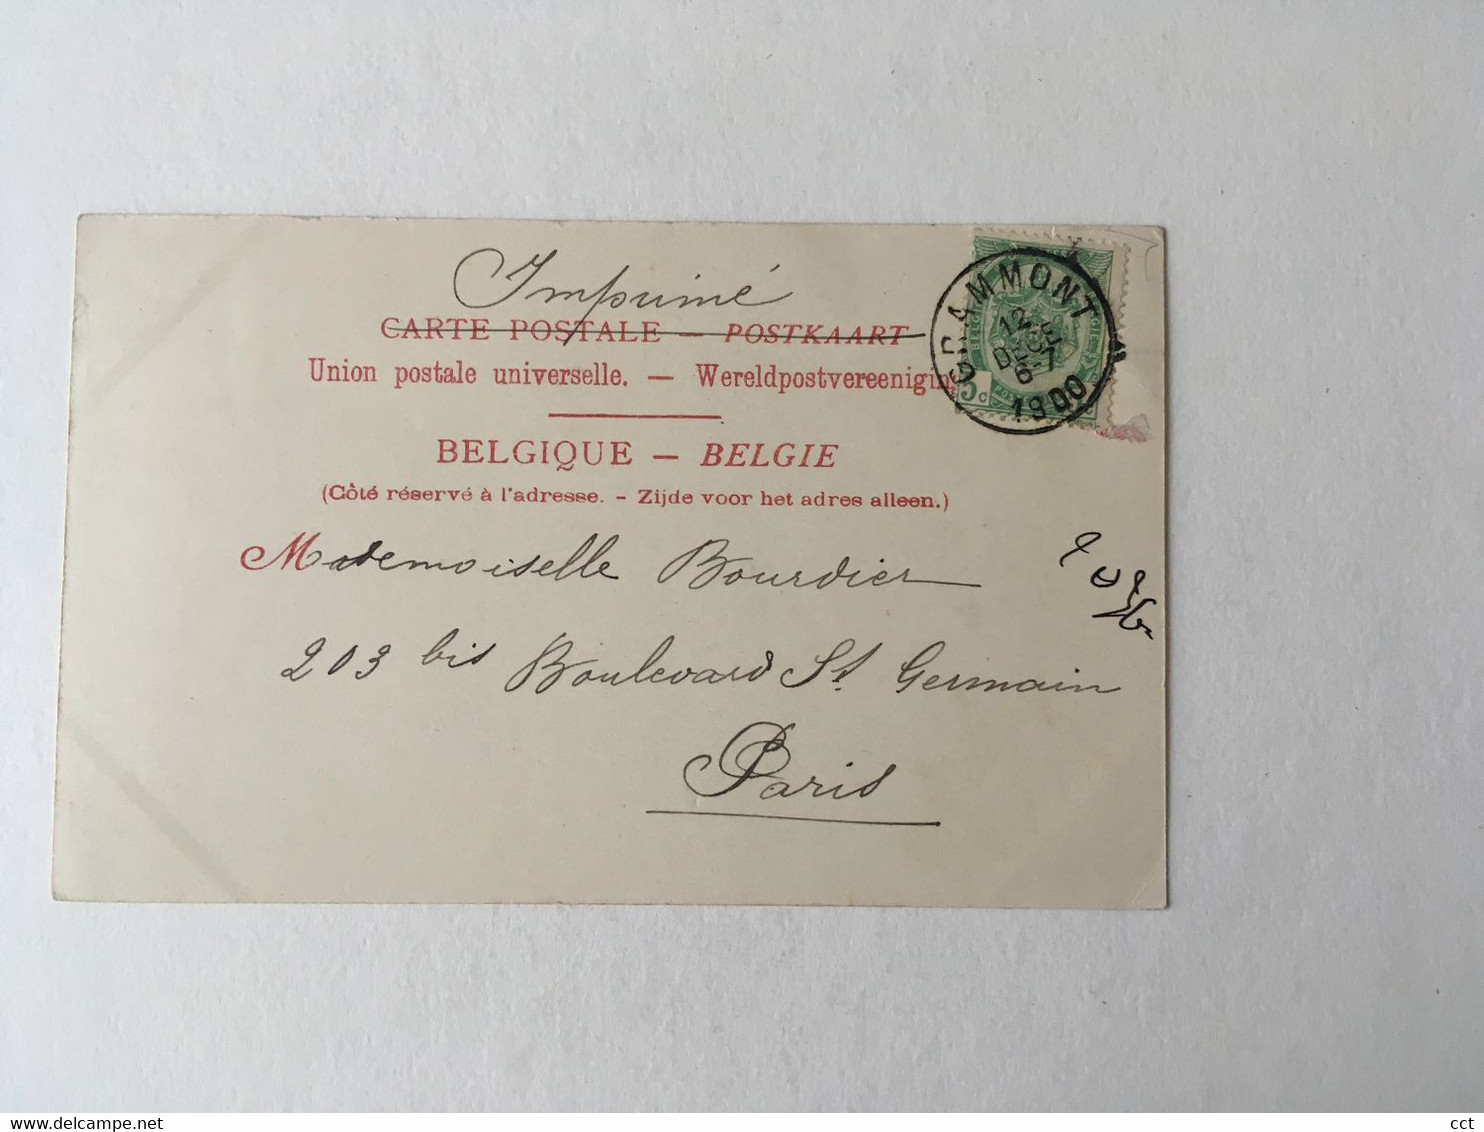 Imprimé
CARTE POSTALE — POSTKAART
Union postale universelle. — Wereldpostvereenigin
GRAMMONT
12
DECE
6-7
1900
5 c
BELGIQUE — BELGIE
(Côté réservé à l'adresse. - Zijde voor het adres alleen.)
Mademoiselle Bourdier
203 bis Boulevard St. Germain
Paris
delcampe.net
cct